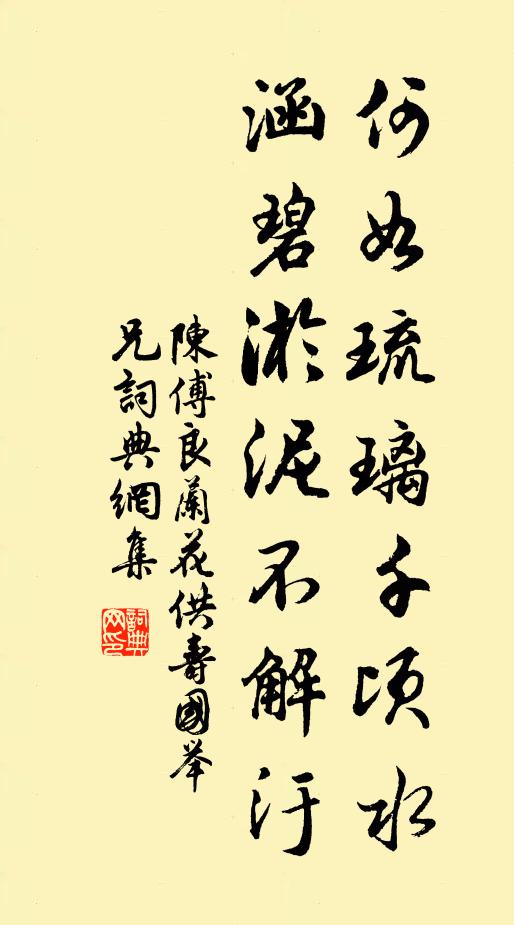 何如琉璃千頃水
涵碧淤泥不解汙
陳傅良蘭花供壽國舉
兄詞典網集
詞典
網印